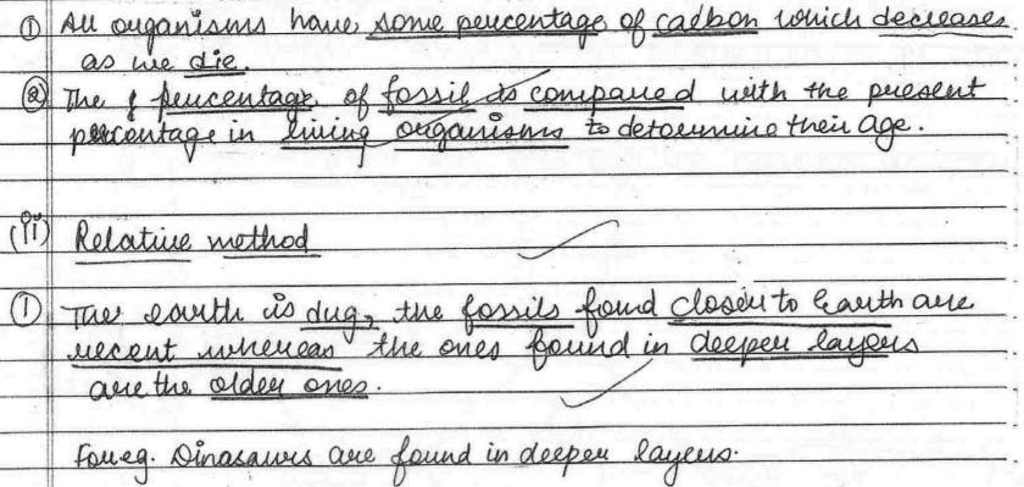 ① All organisms have some percentage of carbon which decreases
as we die.
② The percentage of fossil is compared with the present
percentage in living organisms to determine their age.
(ii) Relative method
① The earth is dug, the fossils found closer to Earth are
recent whereas the ones found in deeper layers
are the older ones.
For eg. Dinasaurs are found in deeper layers.